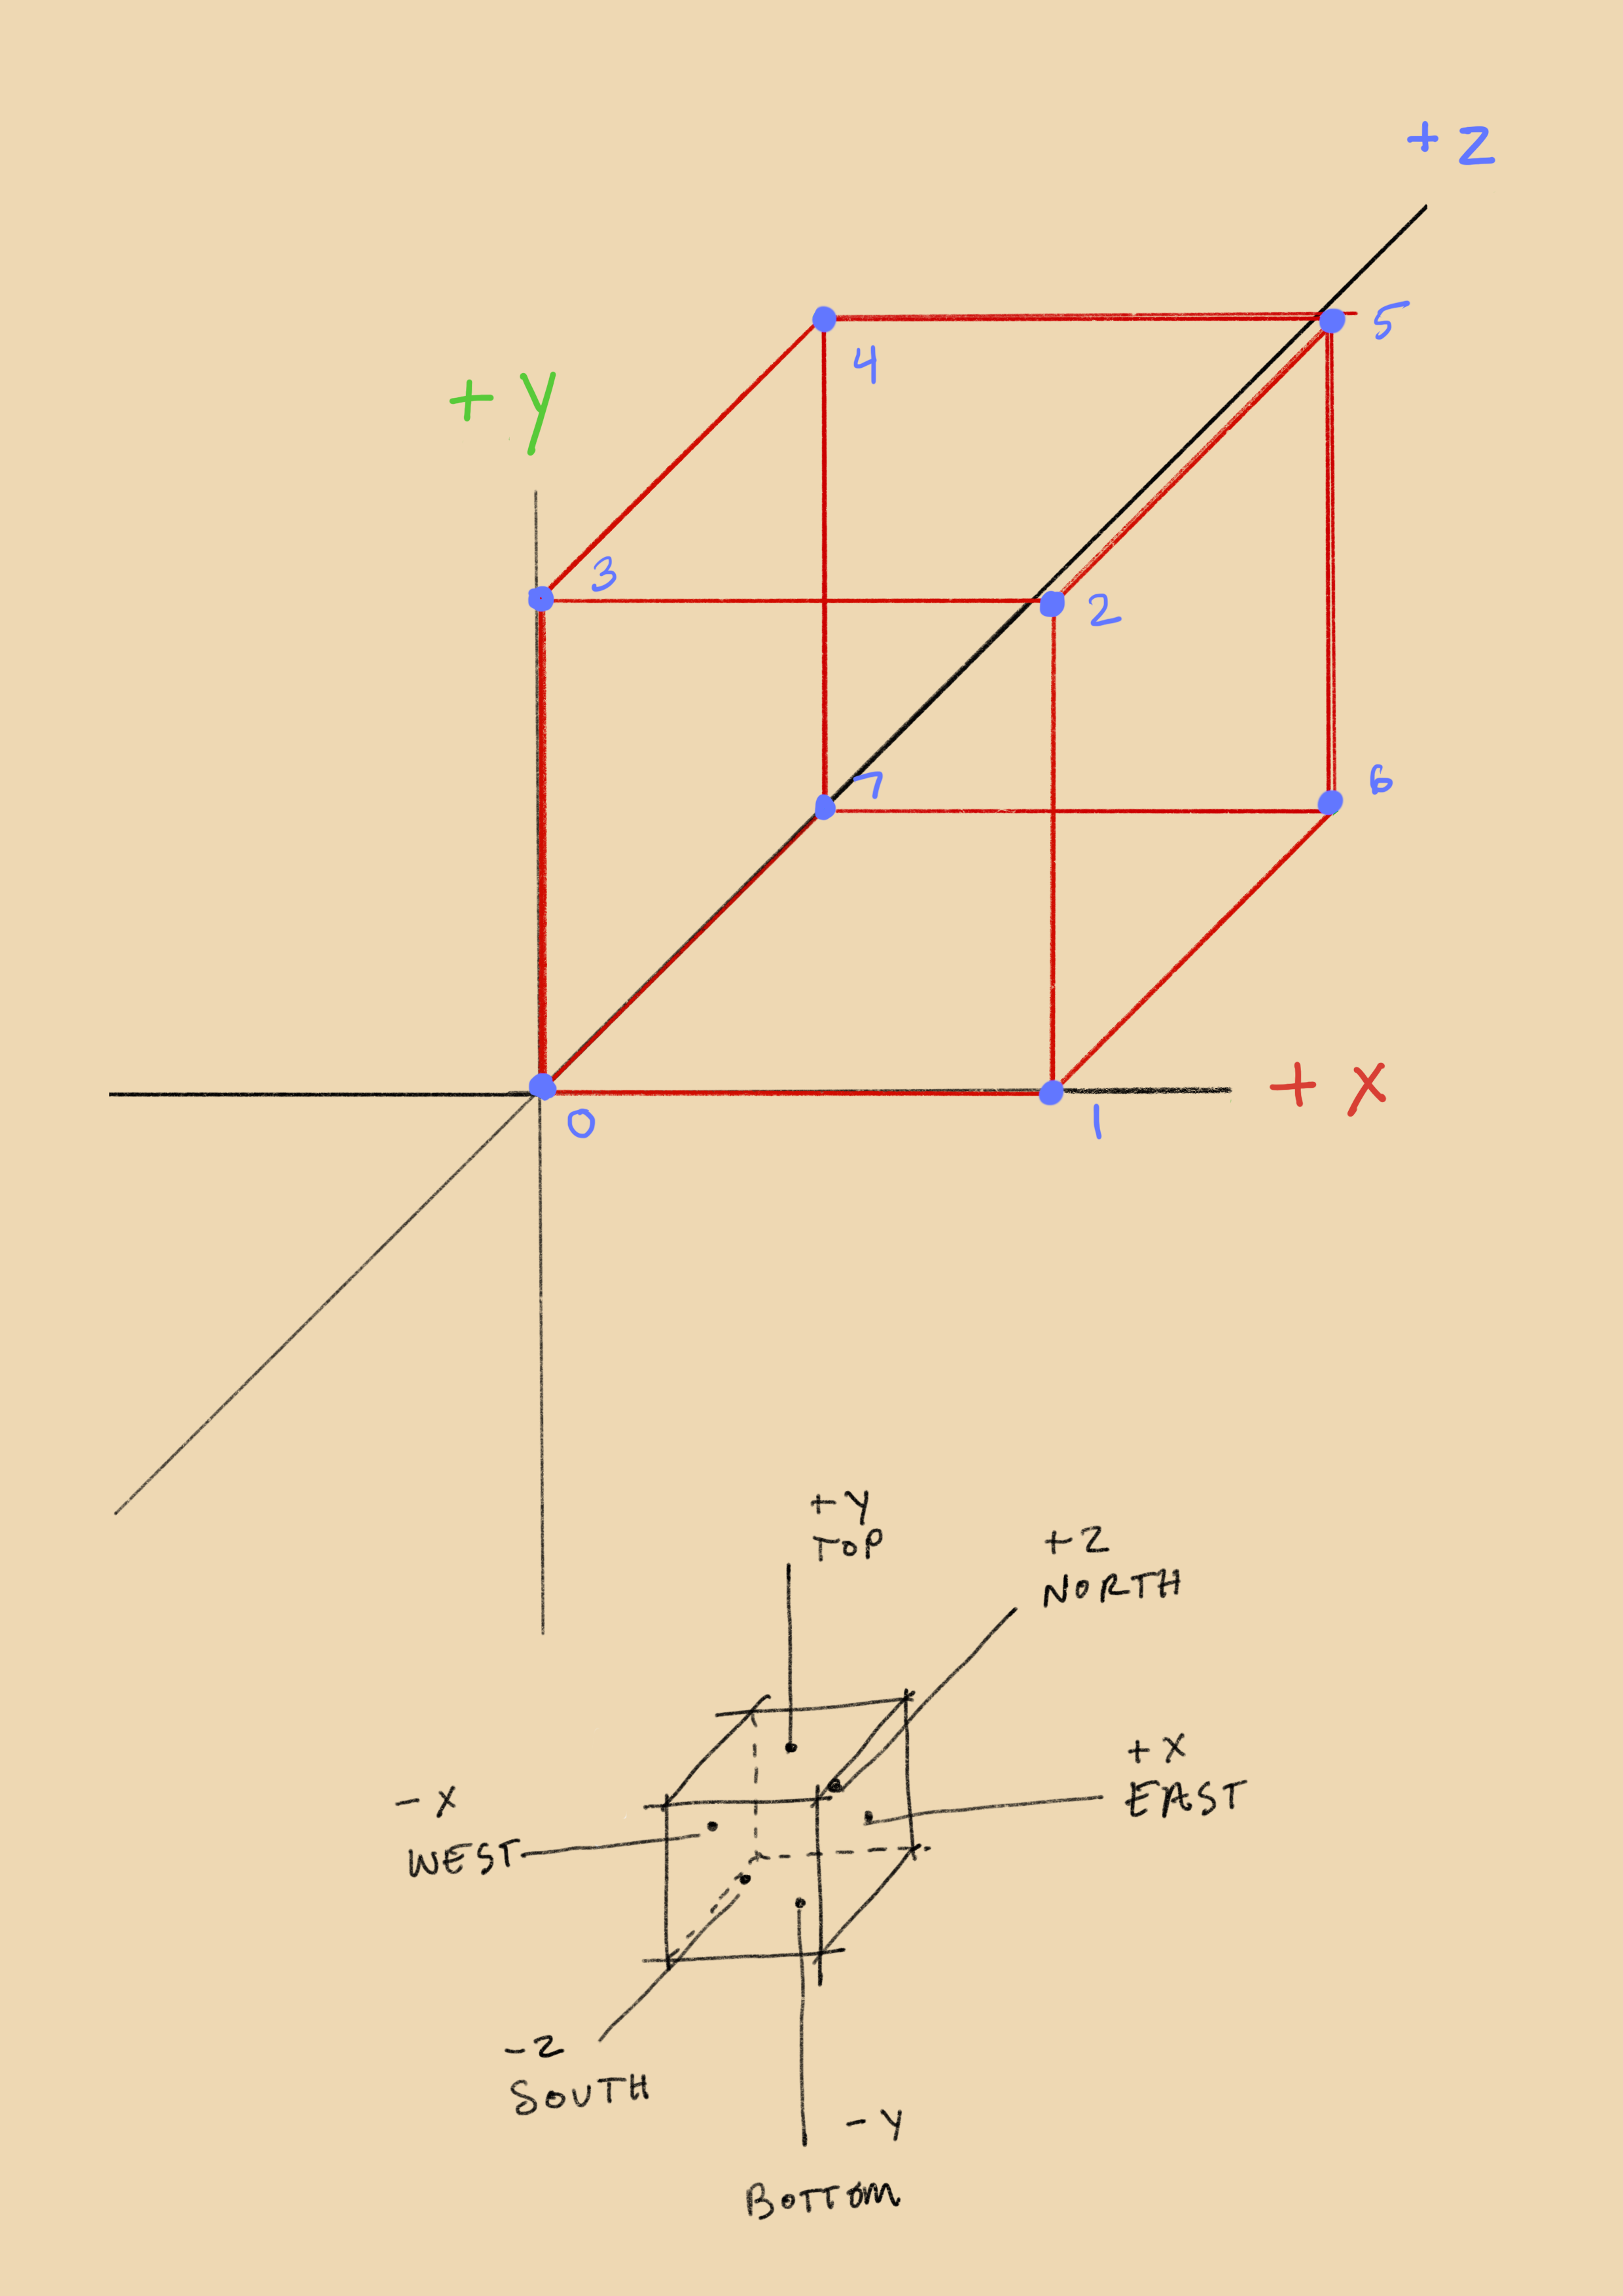 + Z
5
4
+ Y
3
2
7
6
+ X
0
1
+ Y
TOP
+ Z
NORTH
+ X
EAST
- X
WEST
- Z
SOUTH
- Y
BOTTOM